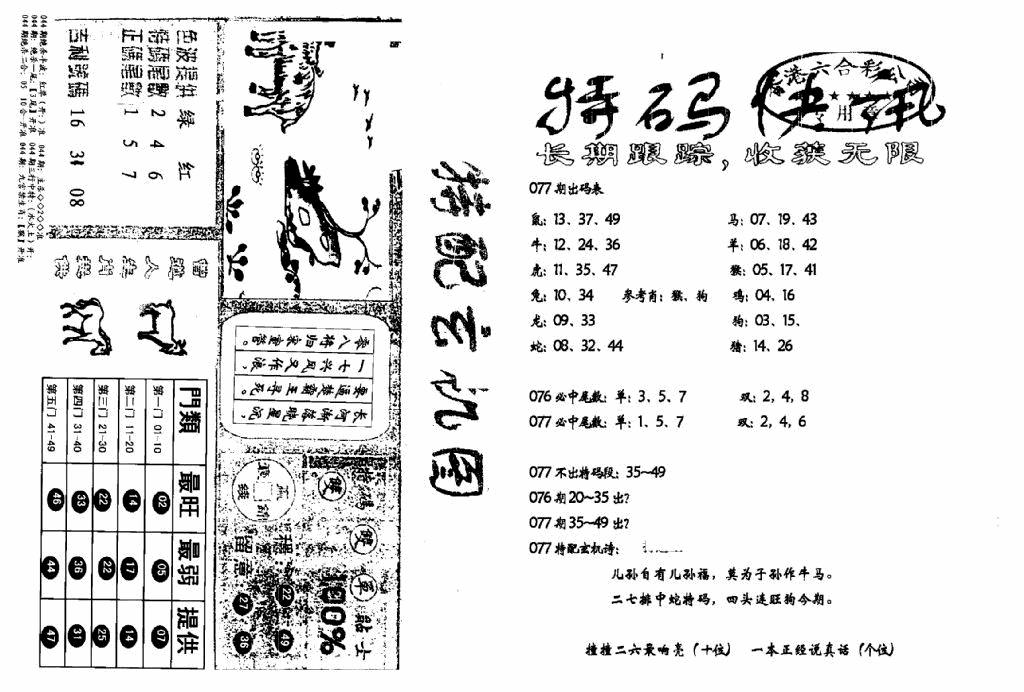 特码快讯
六合彩
专用
长期跟踪，收获无限
077期出码表
鼠: 13、37、49 马: 07、19、43
牛: 12、24、36 羊: 06、18、42
虎: 11、35、47 猴: 05、17、41
兔: 10、34 参考肖: 猴、狗 鸡: 04、16
龙: 09、33 狗: 03、15、
蛇: 08、32、44 猪: 14、26
076必中尾数: 单: 3、5、7 双: 2、4、8
077必中尾数: 单: 1、5、7 双: 2、4、6
077不出特码段: 35~49
076期20~35出?
077期35~49出?
077特配玄机诗:
儿孙自有儿孙福，莫为子孙作牛马。
二七排中蛇特码，四头连旺狗今期。
撞撞二六最响亮（十位） 一本正经说真话（个位）
特配玄机图
色波提供 绿 红
特碼尾數 2 4 6
正碼尾數 1 5 7
吉利號碼 16 34 08
曾道人
零八将归家重营。
一七兴风又作浪，
要逼楚霸王寻死。
門類 最旺 最弱 提供
第一门 01-10 02 05 07
第二门 11-20 14 17 14
第三门 21-30 22 22 25
第四门 31-40 33 36 31
第五门 41-49 46 44 47
特碼
雙
雙
單
100%
貼士
留意
22 49
27 36